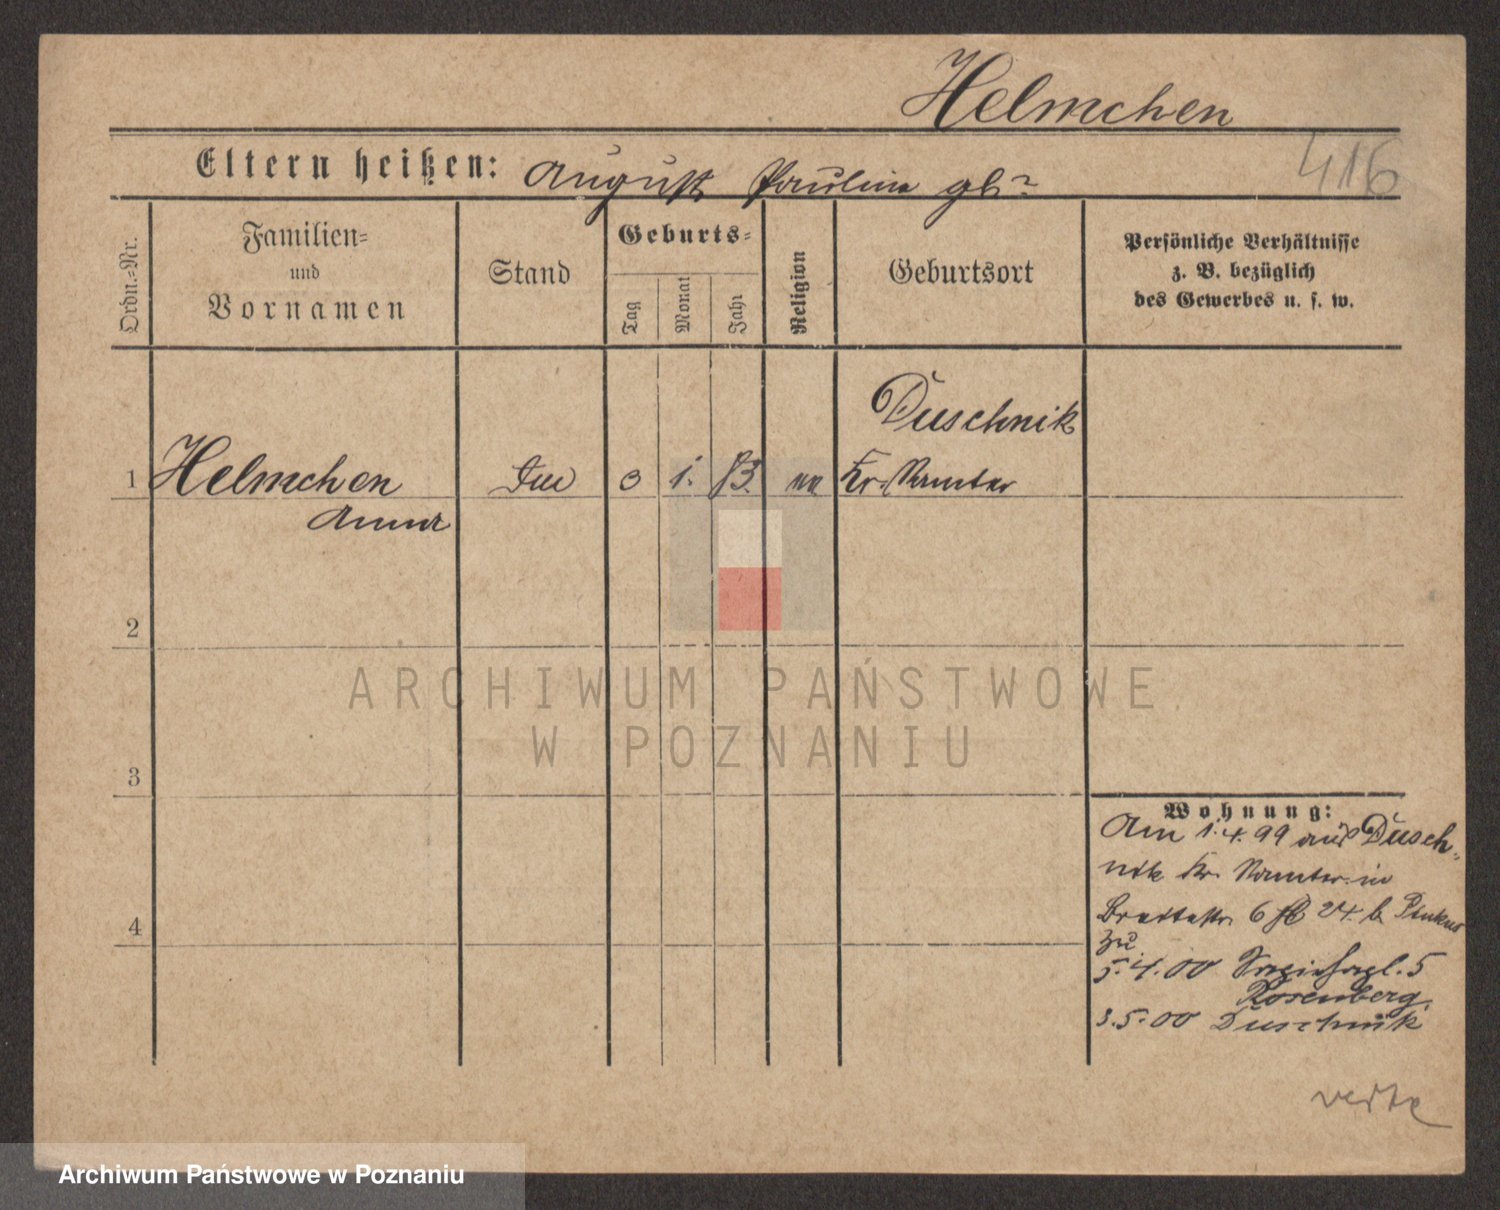 Helmchen
416
Eltern heißen: August Pauline gb?
Ordn.-Nr.
Familien-
und
Vornamen
Stand
Geburts-
Tag
Monat
Jahr
Religion
Geburtsort
Persönliche Verhältnisse
z. B. bezüglich
des Gewerbes u. s. w.
Duschnik
1 Helmchen 3 1. 83. Kr. Samter
Anna
2
3
4
ARCHIWUM PAŃSTWOWE
W POZNANIU
Wohnung:
Am 1.4.99 aus Dusch-
nik Kr. Samter in
Breitestr. 6 24. b.
zu
5.4.00 5
Rosenberg.
3.5.00 Duschnik
verte
Archiwum Państwowe w Poznaniu